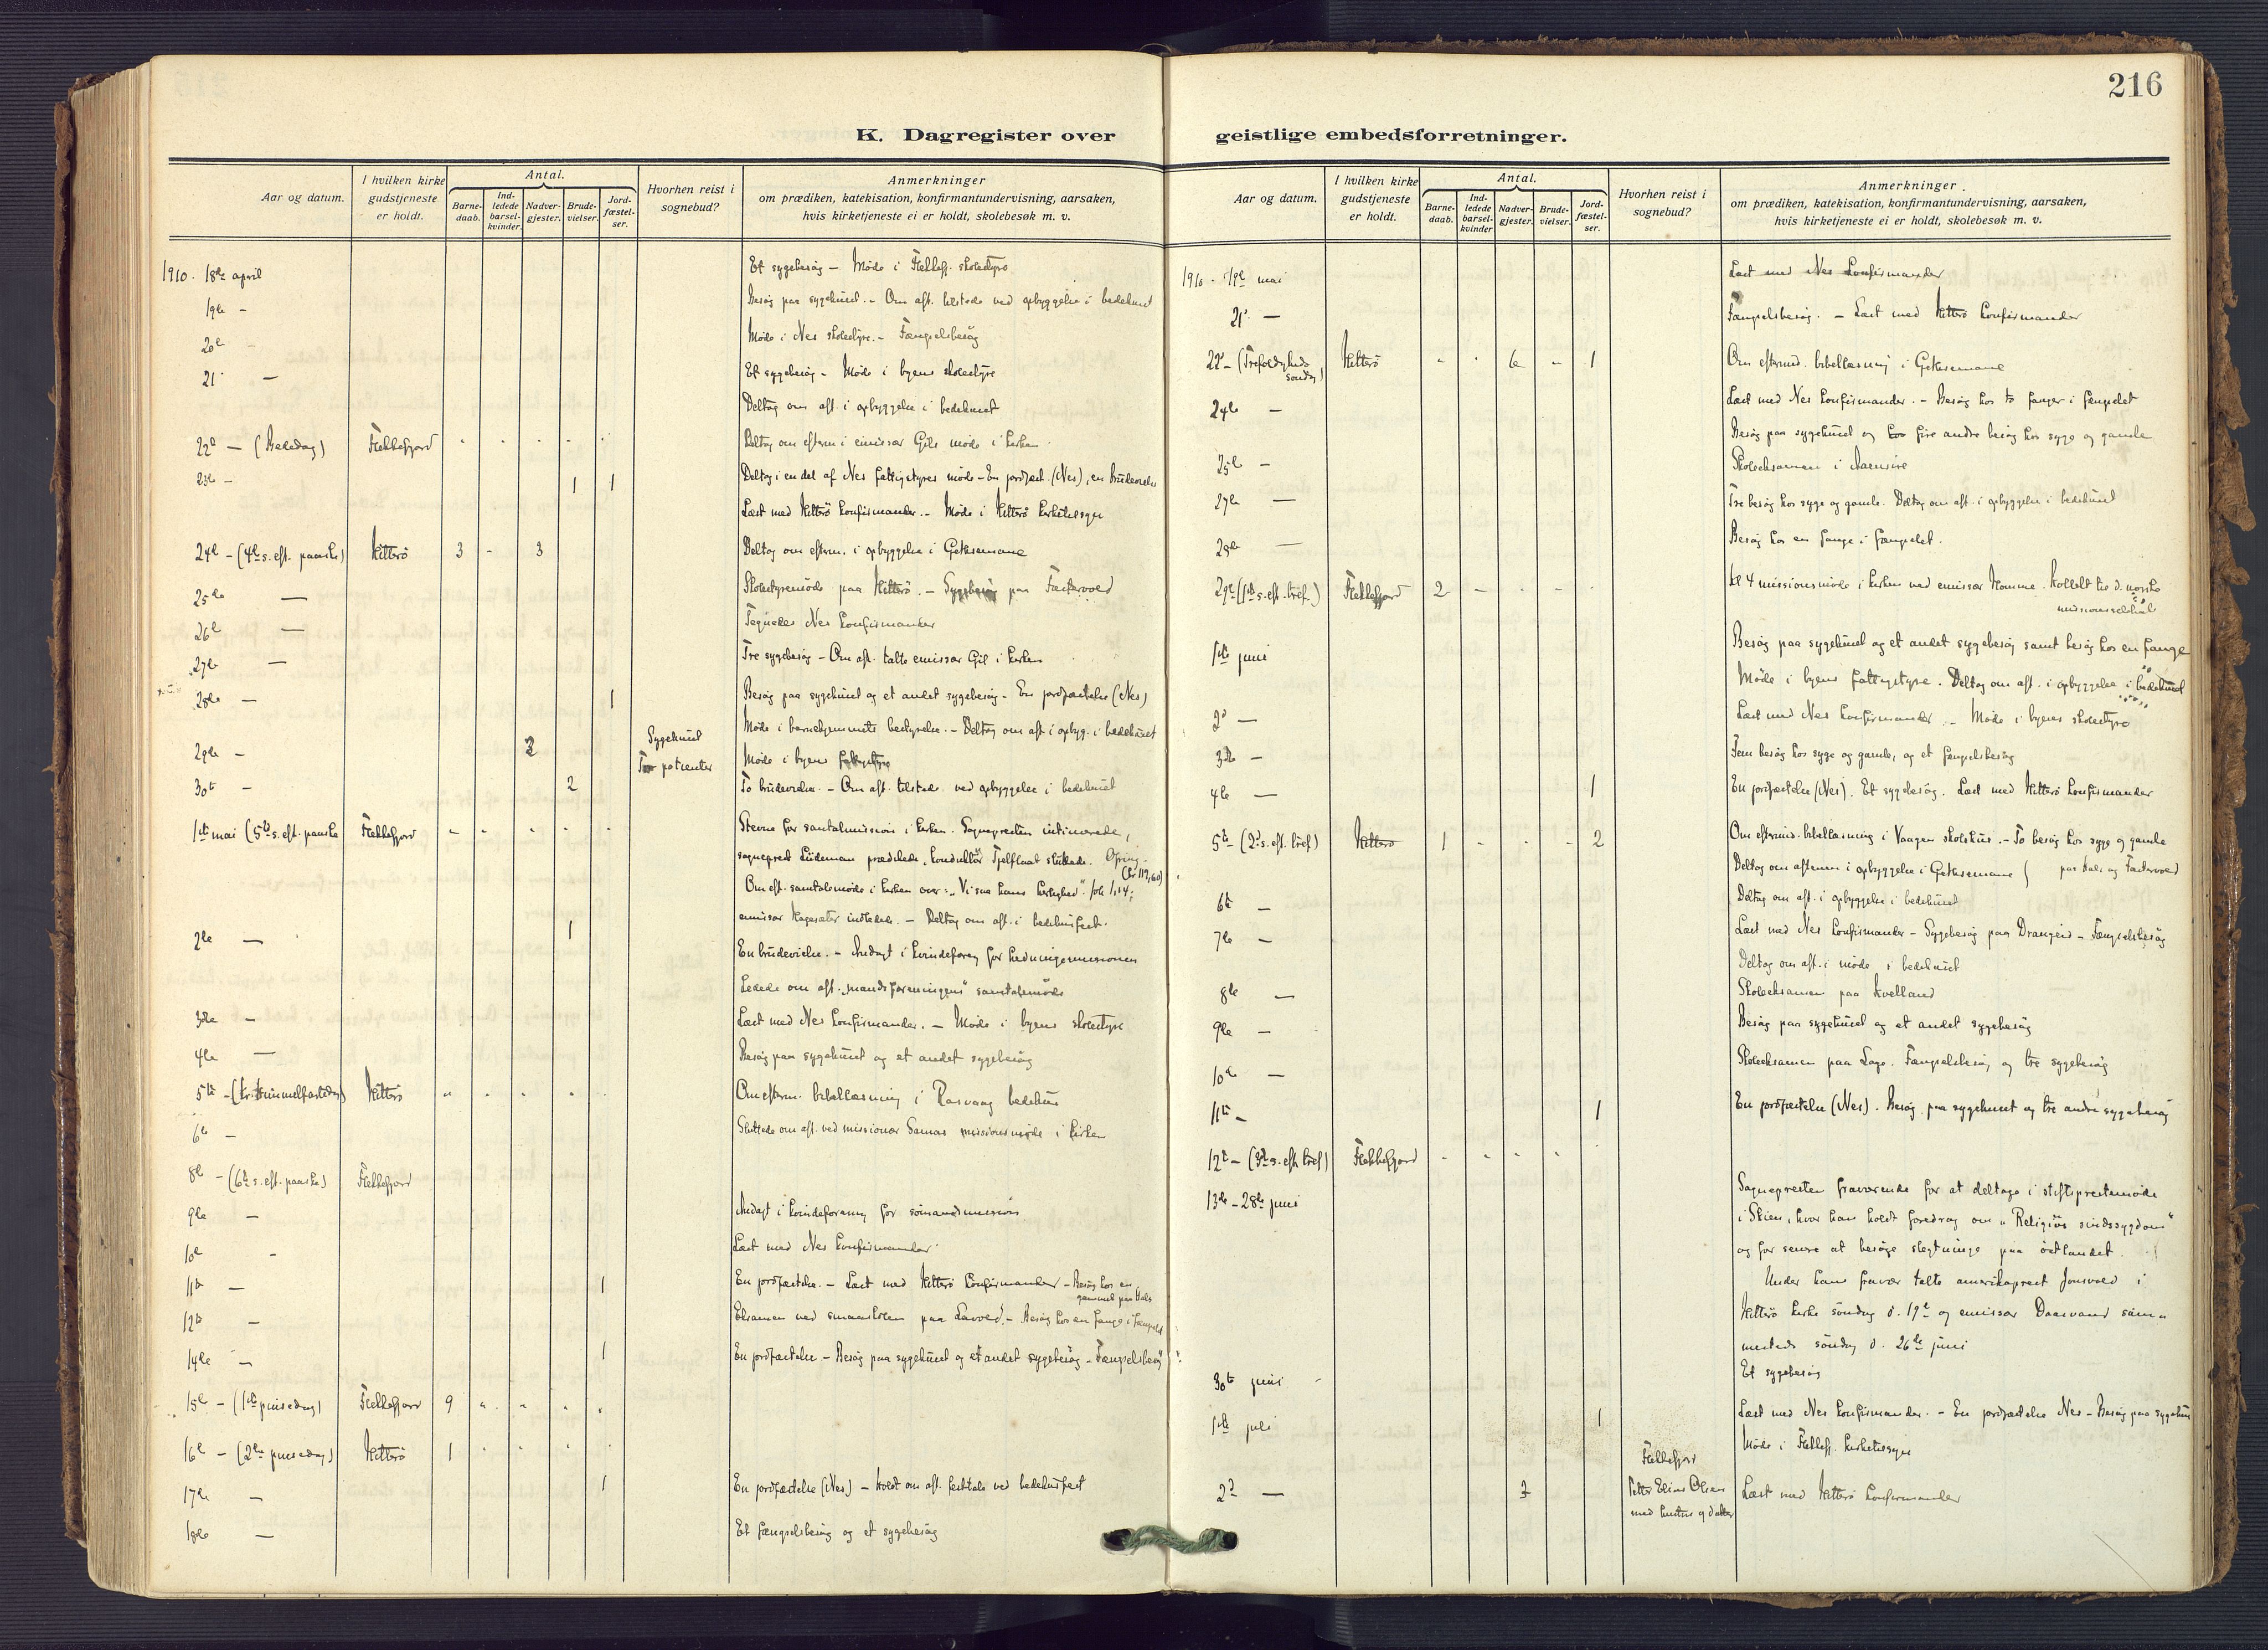 216
K. Dagregister over geistlige embedsforretninger.
Aar og datum.
I hvilken kirke gudstjeneste er holdt.
Antal.
Barne-daab.
Ind-ledede barsel-kvinder.
Nadver-gjester.
Brude-vielser.
Jord-fæstel-ser.
Hvorhen reist i sognebud?
Anmerkninger
om prædiken, katekisation, konfirmantundervisning, aarsaken,
hvis kirketjeneste ei er holdt, skolebesøk m. v.
1910. 18de april Et sygebesøg – Møde i Flekkefj. skolestyre
19de - Besøg paa sygehuset. – Om aft. tilstede ved opbyggelse i bedehuset
20de Møde i Nes skolestyre. – Fængselsbesøg
21 — Et sygebesøg – Møde i byens skolestyre
Deltog om aft. i opbyggelse i bedehuset
22d — (Bededag) Flekkefjord Deltog om efterm i emissær Gils møde i kirken
23de - 1 1 Deltog i en del af Nes fattigstyres møde – En jordfæst. (Nes), en brudevielse
Læst med Hitterö konfirmander. – Møde i Hitterö kirketilsyn
24de - (4de s. eft. paaske) Hitterö 3 - 3 Deltog om efterm. i opbyggelse i Gethsemane
25de — Skolestyremöde paa Hitterö. – Sygebesøg paa
26de — Nes konfirmander
27de — Tre sygebesøg – Om aft. talte emissær Gil i kirken
28de — 1 Besøg paa sygehuset og et andet sygebesøg – En jordfæstelse (Nes)
Møde i barnehjemmets bestyrelse. – Deltog om aft i opbyg. i bedehuset
29de — 2 Sygehuset patienter Møde i byens fattigstyre
30te - 2 To brudevielser. – Om aft. tilstede ved opbyggelse i bedehuset
1ste mai (5te s. eft. paaske Flekkefjord Stevne for santalmission i kirken. Sognepresten intimerede,
sogneprest Lüdeman prædikede, sluttede.
(kr 119,60)
Om eft. samtalemøde i kirken over: „Vi saa hans herlighed“. Joh 1,14;
emissær indledede. – Deltog om aft. i bedehusfest.
2de — 1 En brudevielse. – Andagt i kvindeforeng for hedningemissionen
Ledede om aft. „mandsforeningens“ samtalemøde
3die - Læst med Nes konfirmander. – Møde i byens skolestyre
4de — Besøg paa sygehuset og et andet sygebesøg
5te - (kr. himmelfartsdag) Hitterö Om efterm. bibellæsning i Rasvaag bedehus
6te — Sluttede om aft. ved missionær missionsmøde i kirken
8de - (6te s. eft. paaske) Flekkefjord
9de — Andagt i kvindeforening for sömandsmission
10de - Læst med Nes konfirmander
11te — 1 En jordfæstelse. – Læst med Hitterö konfirmander – Besøg hos en
gammel paa
12te — Eksamen ved smaaskolen paa – Besøg hos en fange i fængslet
14de — 1 En jordfæstelse – Besøg paa sygehuset og et andet sygebesøg – Fængselsbesøg
15de - (1ste pinsedag) Flekkefjord 9
16de - (2den pinsedag) Hitterö 1
17de — 1 En jordfæstelse (Nes) – Holdt om aft. festtale ved bedehusfest
18de — Et fængselsbesøg og et sygebesøg
Aar og datum.
I hvilken kirke gudstjeneste er holdt.
Antal.
Barne-daab.
Ind-ledede barsel-kvinder
Nadver-gjester.
Brude-vielser.
Jord-fæstel-ser.
Hvorhen reist i sognebud?
Anmerkninger.
om prædiken, katekisation, konfirmantundervisning, aarsaken,
hvis kirketjeneste ei er holdt, skolebesøk m. v.
1910 - mai Læst med Nes konfirmander
21 — Fængselsbesøg. – Læst med Hitterö konfirmander
22 - (Trefoldigheds söndag) Hitterö 6 - 1 Om efterm. bibellæsning i Gethsemane
24de — Læst med Nes konfirmander. – Besøg hos to fanger i fængslet
Besøg paa sygehuset og fire andre besøg hos syge og gamle
25de — Skoleeksamen i
27de — Tre besøg hos syge og gamle. Deltog om aft. i opbyggelse i bedehuset
28de — Besøg hos en fange i fængslet.
29de (1ste s. eft. tref.) Flekkefjord 2 Kl 4 missionsmöde i kirken ved emissær Homme. Kollekt til d. norske
missionsselskab
1ste juni Besøg paa sygehuset og et andet sygebesøg samt besøg hos en fange
Møde i byens fattigstyre. Deltog om aft. i opbyggelse i bedehuset
2d — Læst med Nes konfirmander. – Møde i byens skolestyre
3die — Fem besøg hos syge og gamle, og et fængselsbesøg
4de — 1 En jordfæstelse (Nes). Et sygebesøg. Læst med Hitterö konfirmander
5te - (2d s. eft. tref) Hitterö 1 2 Om efterm. bibellæsning i Vaagen skolehus. – To besøg hos syge og gamle
Deltog om aftenen i opbyggelse i Gethsemane
6te — Deltog om aft. i opbyggelse i bedehuset
7de — Læst med Nes konfirmander – Sygebesøg paa Drangeid – Fængselsbesøg
Deltog om aft. i møde i bedehuset
8de — Skoleeksamen paa Kvelland
9de — Besøg paa sygehuset og et andet sygebesøg
10de — Skoleeksamen paa Loge. Fængselsbesøg og tre sygebesøg
11te — 1 En jordfæstelse (Nes). Besøg paa sygehuset og tre andre sygebesøg
12te - (3die s. eft tref) Flekkefjord
13de - 28de juni Sognepresten fraværende for at deltage i stiftsprestemöde
i Skien, hvor han holdt foredrag om „Religiös sindssygdom“
og for senere at besöge slegtninge paa östlandet.
Under hans fravær talte amerikaprest i
Hitterö kirke söndag d. 19de og emissær Daasvand samme
steds söndag d. 26de juni
30te juni Et sygebesøg
1ste juli 1 Læst med Nes konfirmander. – En jordfæstelse Nes – Besøg paa sygehus
Møde i Flekkefj. kirketilsyn
2d — 3 Flekkefjord Olsen med hustru og datter Læst med Hitterö konfirmander